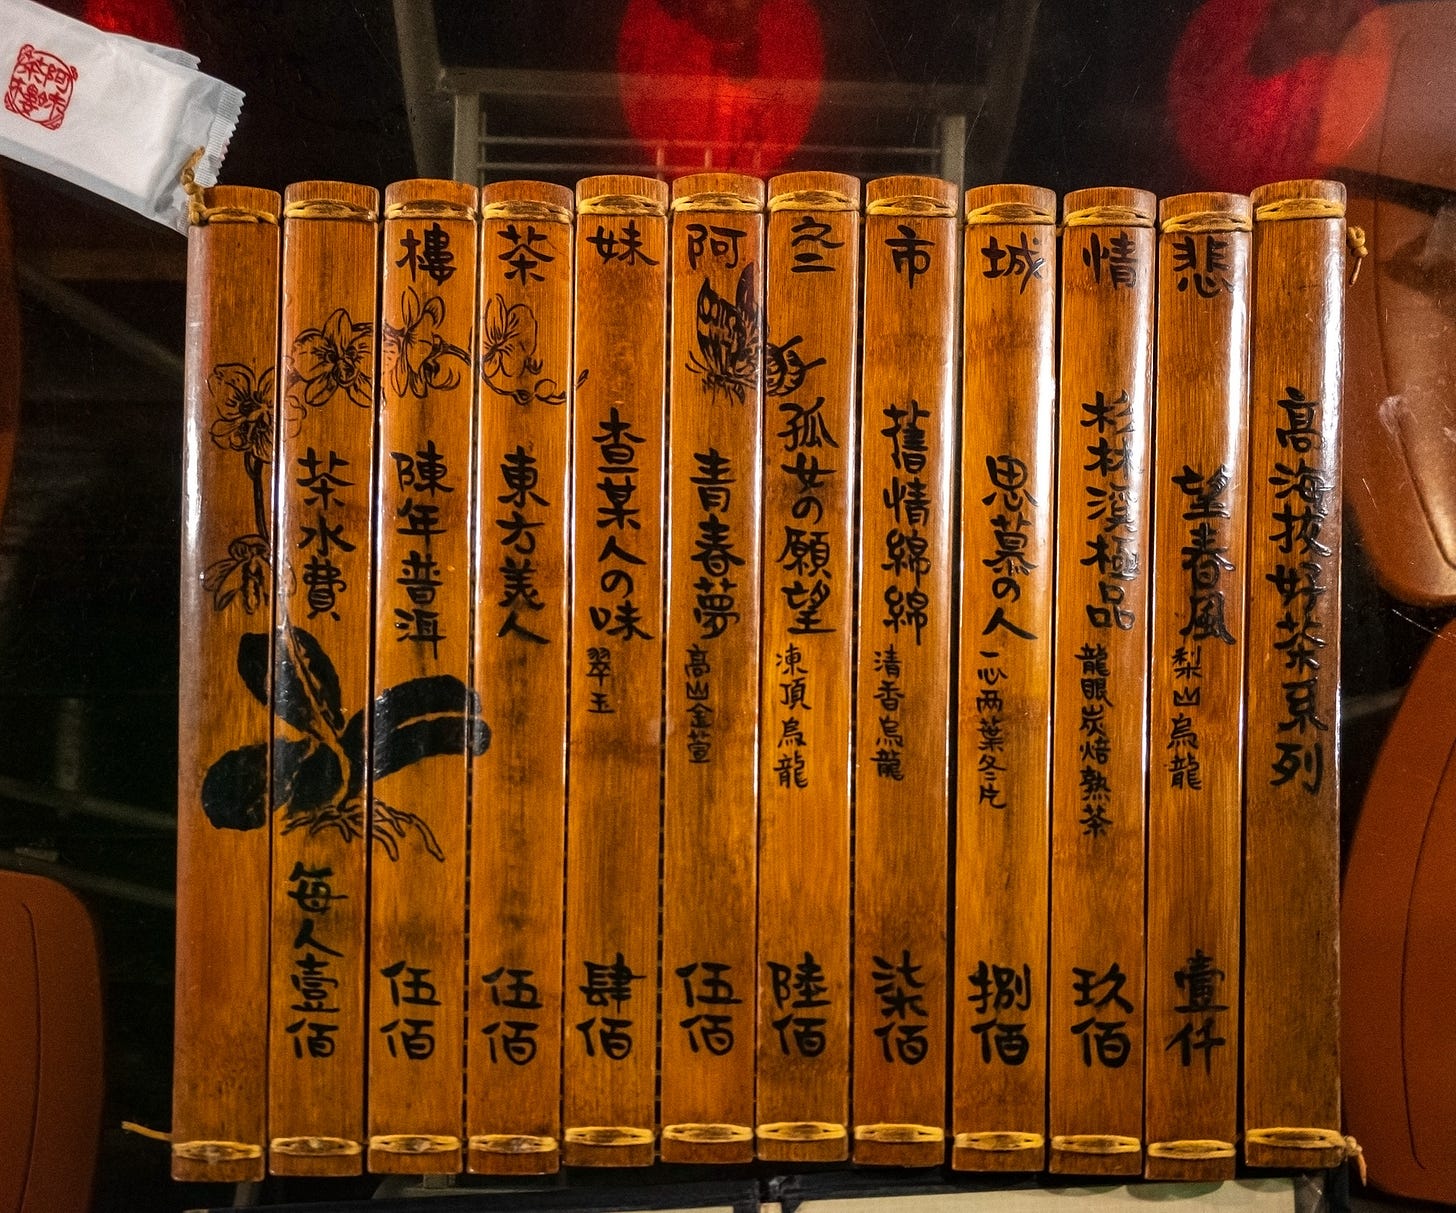 悲情城市之二阿妹茶樓
高海拔好茶系列
望春風 梨山烏龍 壹仟
杉林溪極品 龍眼炭焙熟茶 玖佰
思慕の人 一心两葉冬片 捌佰
舊情綿綿 清香烏龍 柒佰
孤女の願望 凍頂烏龍 陸佰
青春夢 高山金萱 伍佰
查某人の味 翠玉 肆佰
東方美人 伍佰
陳年普洱 伍佰
茶水費 每人壹佰
阿妹茶樓